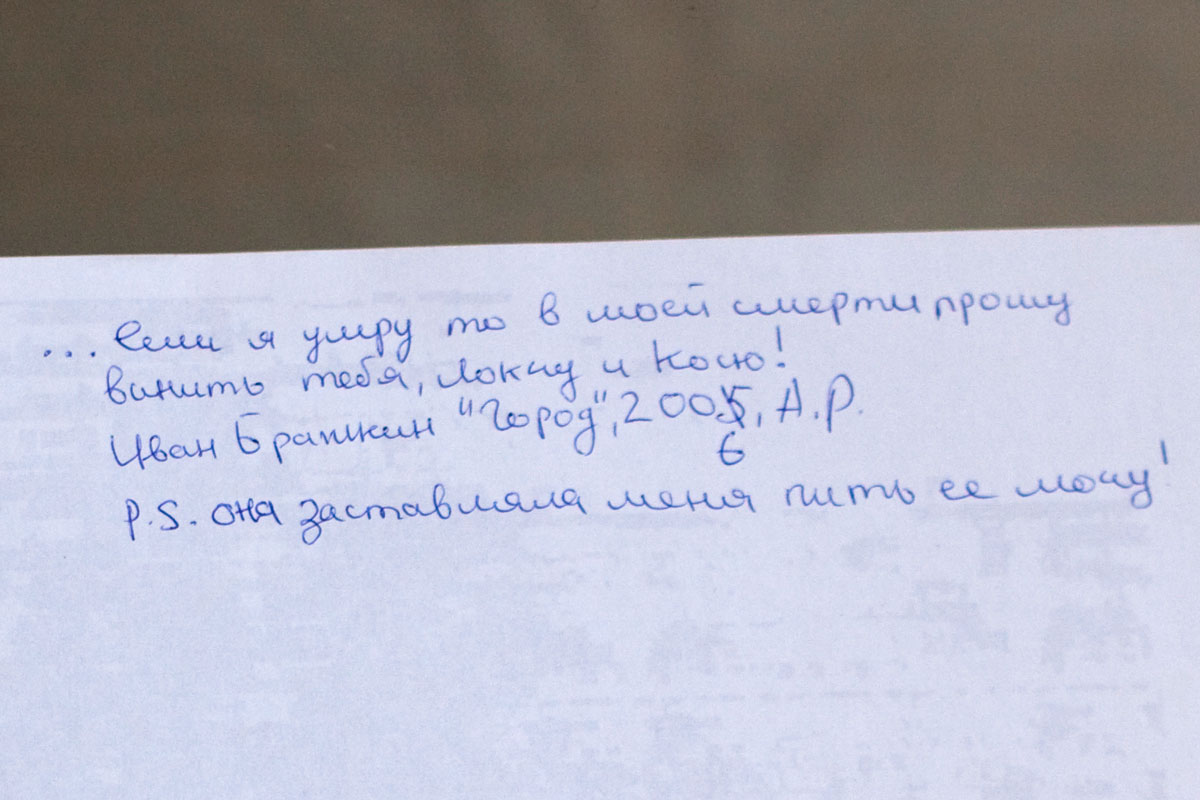 ... Если я умру то в моей смерти прошу
винить тебя, Локсу и Косю!
Иван Бражкин "Город", 2005, А.Р.
6
P.S. она заставляла меня пить ее мочу!